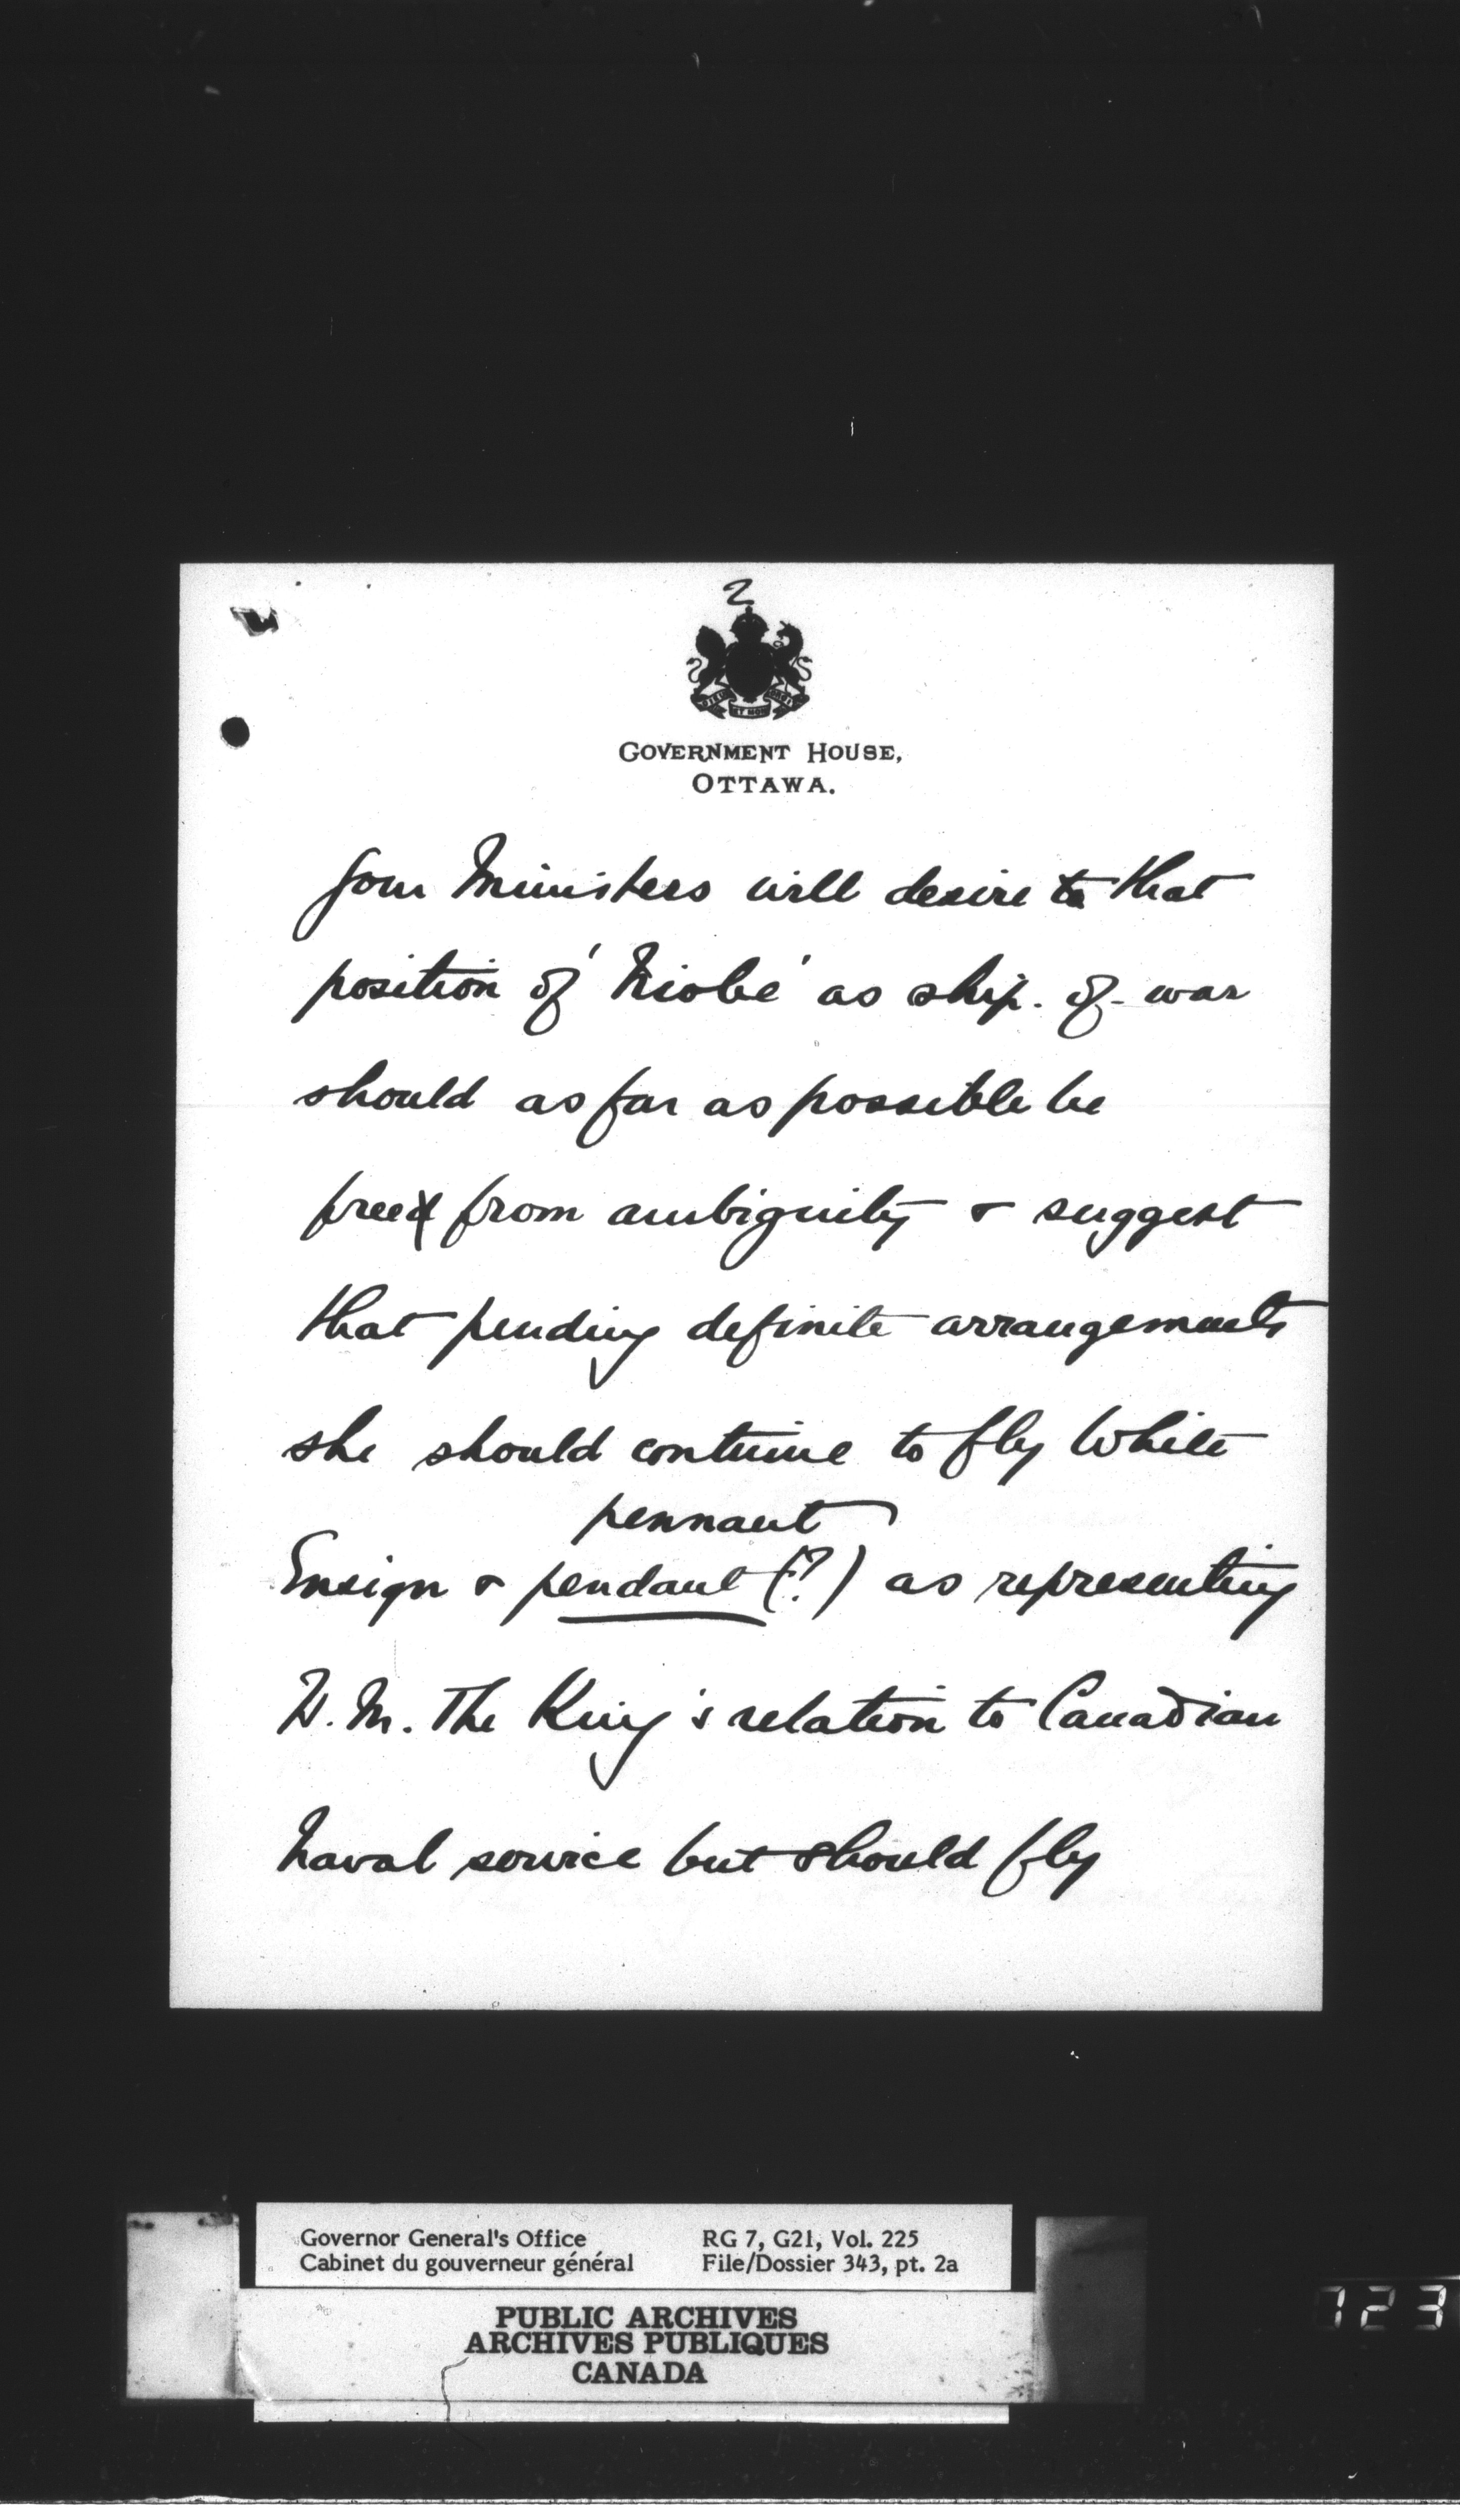 2
GOVERNMENT HOUSE,
OTTAWA.
your Ministers will desire to that
position of 'Niobe' as ship-of-war
should as far as possible be
freed from ambiguity & suggest
that pending definite arrangements
she should continue to fly White
pennant
Ensign & pendant (?) as representing
H.M. The King's relation to Canadian
Naval service but should fly
Governor General's Office RG 7, G21, Vol. 225
Cabinet du gouverneur général File/Dossier 343, pt. 2a
PUBLIC ARCHIVES
ARCHIVES PUBLIQUES
CANADA
723